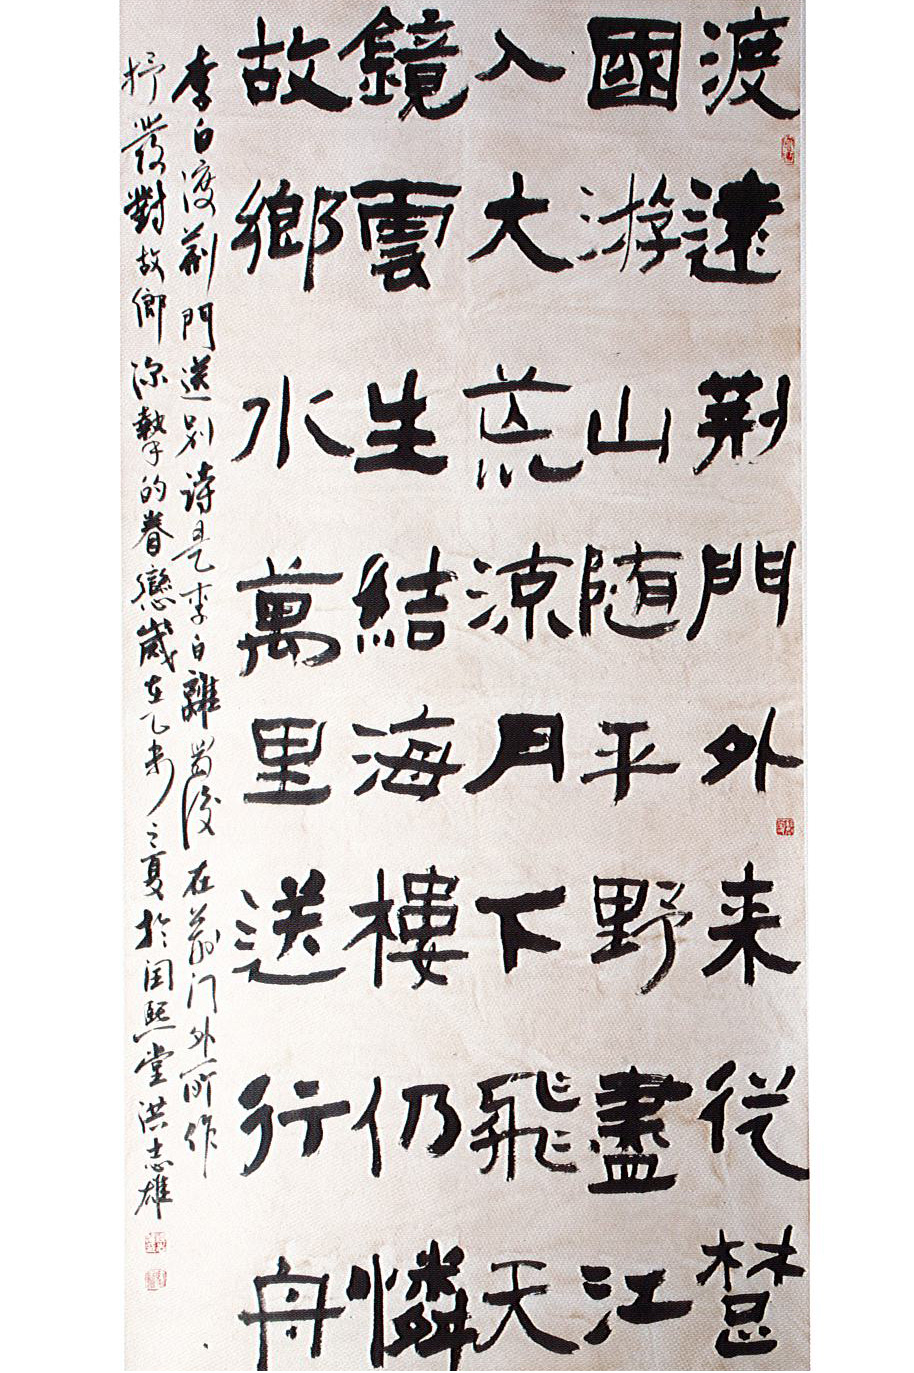 渡遠荆門外来從楚
國游山随平野盡江
入大荒涼月下飛天
鏡雲生結海樓仍憐
故鄉水萬里送行舟
李白渡荆門送别诗是李白離蜀後在荆门外所作
抒發對故鄉深摯的眷戀歲在乙未之夏於闰熙堂洪志雄